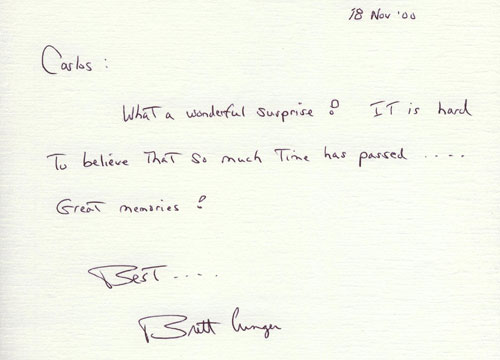 18 Nov '00
Carlos :
What a wonderful surprise! IT is hard
To believe That so much Time has passed ....
Great memories!
Best ....
Brett